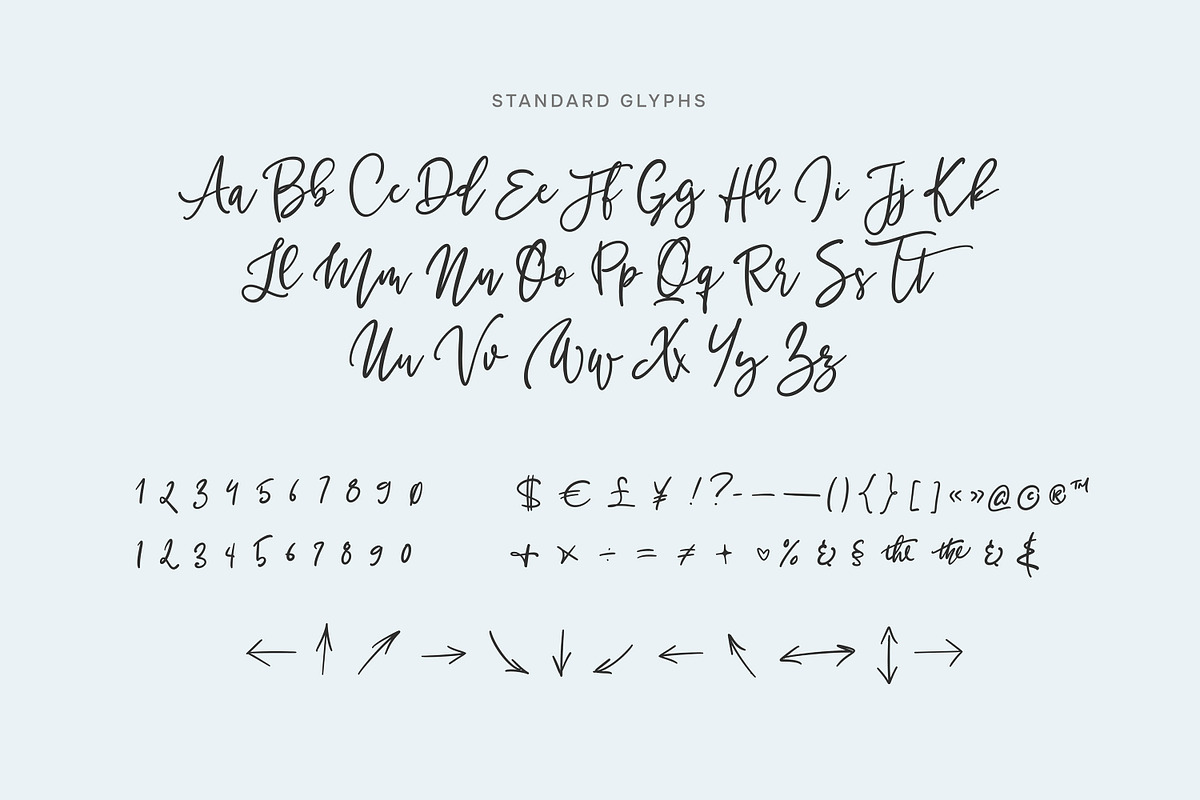 STANDARD GLYPHS
Aa Bb Cc Dd Ee Ff Gg Hh Ii Jj Kk
Ll Mm Nn Oo Pp Qq Rr Ss Tt
Uu Vv Ww Xx Yy Zz
1 2 3 4 5 6 7 8 9 0 $ € £ ¥ ! ? - – — ( ) { } [ ] « » @ © ® ™
1 2 3 4 5 6 7 8 9 0 + × ÷ = ≠ + ♡ % & § the the & &
← ↑ ↗ → ↘ ↓ ↙ ← ↖ ↔ ↕ →